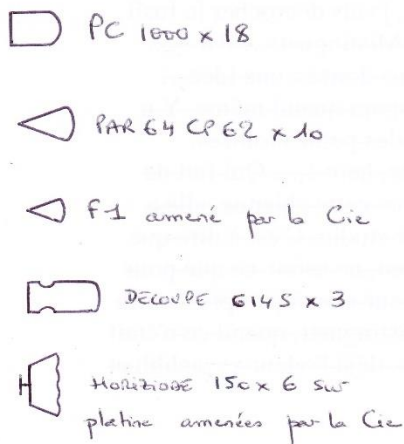 PC 1000 x 18
PAR 64 CP 62 x 10
F1 amené par la Cie
DECOUPE 614S x 3
HORIZIODE 150 x 6 sur
platine amenées par la Cie